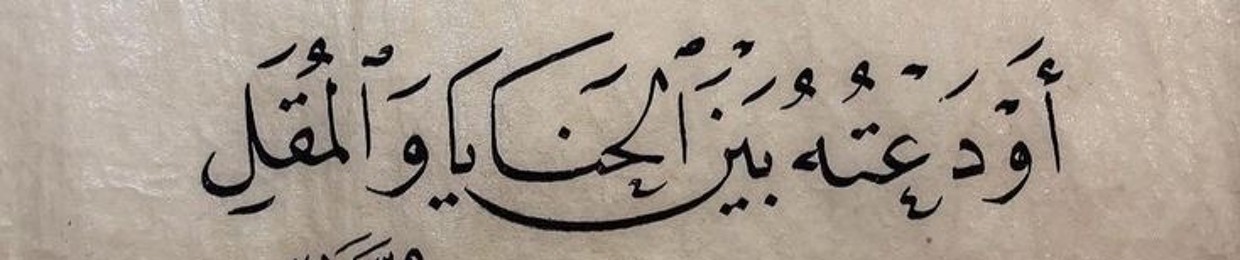 أَوْدَعْتُهُ بَيْنَ ٱلْحَنَايَا وَٱلْمُقَلِ